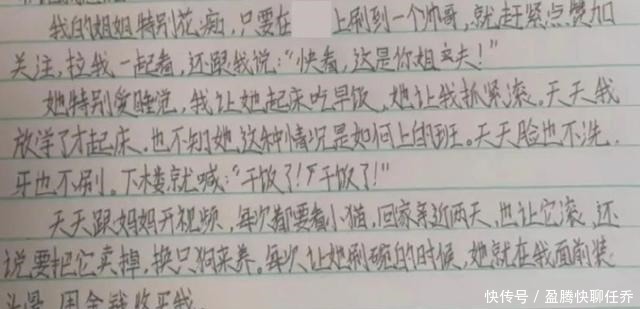 我的姐姐特别花痴,只要在 上刷到一个帅哥,就赶紧点赞加
关注,拉我一起看,还跟我说:“快看,这是你姐夫!”
她特别爱睡觉,我让她起床吃早饭,她让我抓紧滚。天天我
放学了才起床,也不知她这种情况是如何上的班。天天脸也不洗,
牙也不刷。下楼就喊:“干饭了!干饭了!”
天天跟妈妈开视频,每次都要看小猫,回家亲近两天,也让它滚,还
说要把它卖掉,换只狗来养。每次让她刷碗的时候,她就在我面前装
用金钱收买我
快传号/盈腾快聊任乔